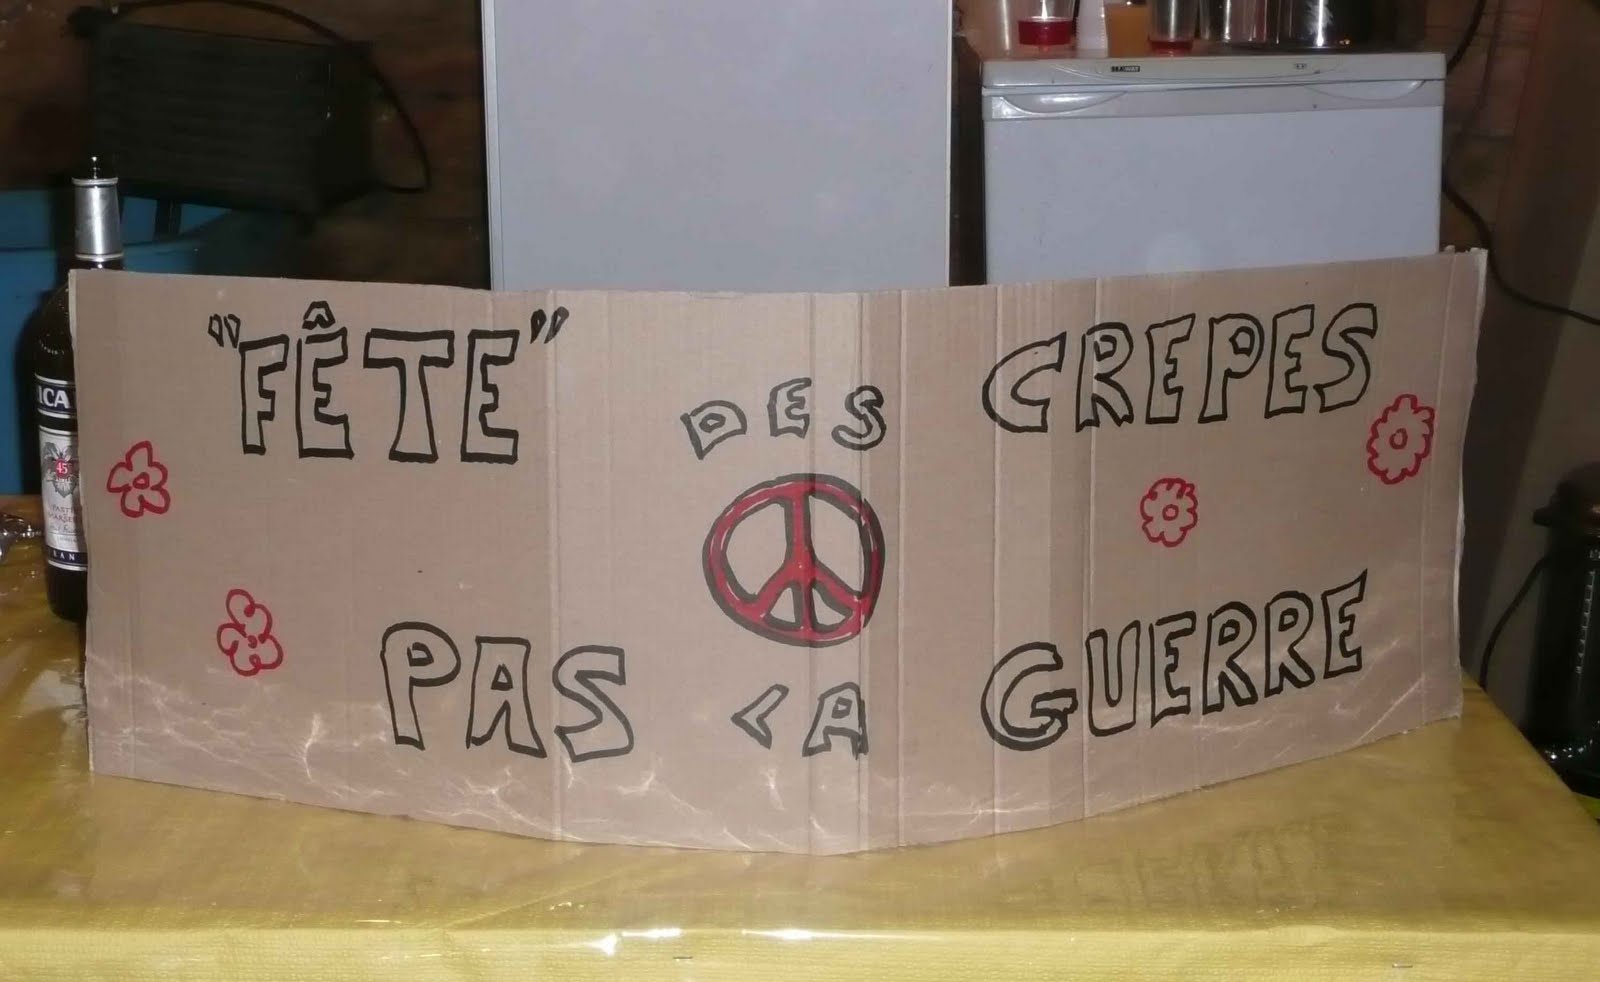 "FÊTE" DES CREPES
PAS LA GUERRE
ICA
45
PAST